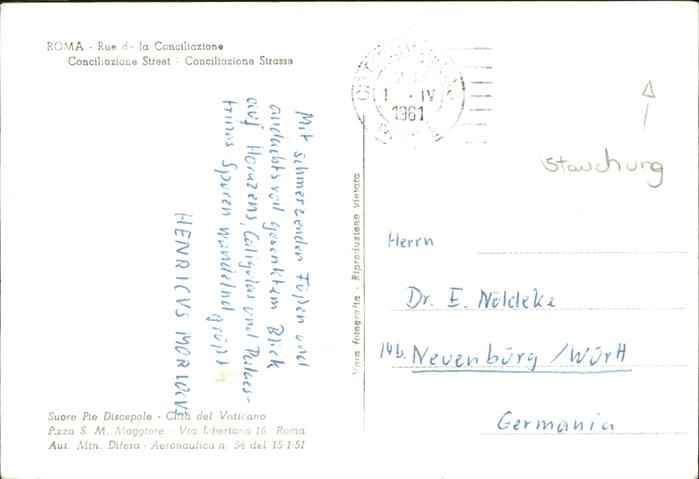 ROMA - Rue de la Conciliazione
Conciliazione Street - Conciliazione Strasse
Mit schmerzenden Füßen und
andachtsvoll gesenktem Blick
auf Horazens, Caligulas und Palaes-
trinas Spuren wandelnd grüßt
HENRICVS
Suore Pie Discepole - Città del Vaticano
P.zza S. M. Maggiore - Via Liberiana 16 - Roma
Aut. Min. Difesa - Aeronautica n. 54 del 15-1-51
Vera fotografia - Riproduzione vietata
1 . IV
1961
Stauchung
Herrn
Dr. E. Nöldeke
14b. Neuenbürg / Württ
Germania